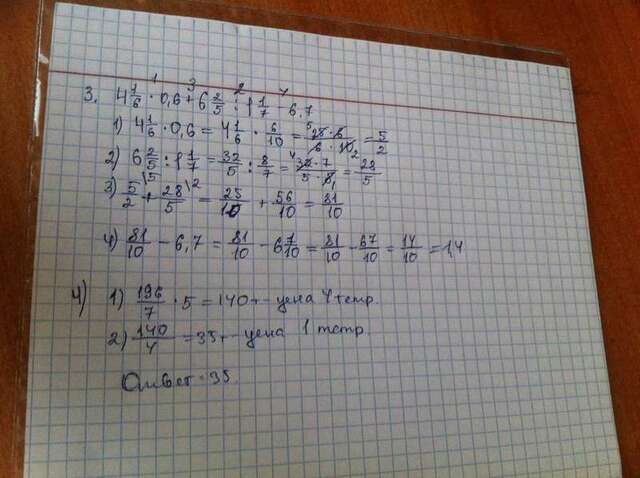 3. 4 1/6 · 0,6 + 6 2/5 : 1 1/7 - 6,7
1) 4 1/6 · 0,6 = 4 1/6 · 6/10 = 25·6/6·10 = 5/2
2) 6 2/5 : 1 1/7 = 32/5 : 8/7 = 32·7/5·8 = 28/5
3) 5/2 + 28/5 = 25/10 + 56/10 = 81/10
4) 81/10 - 6,7 = 81/10 - 6 7/10 = 81/10 - 67/10 = 14/10 = 1,4
4) 1) 196/7 · 5 = 140 - цена 4 тетр
2) 140/4 = 35 - цена 1 тетр
Ответ = 35